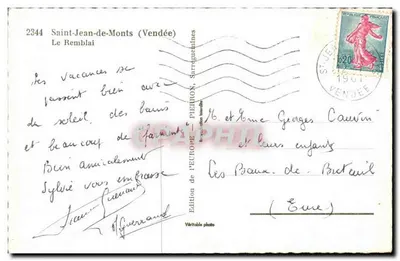 2344 Saint-Jean-de-Monts (Vendée)
Le Remblai
Les vacances se
passent bien avec
du soleil, des bains
et beaucoup de
Bien amicalement
Sylvie vous embrasse
Edition de l'EUROPE PIERRON, Sarreguemines
Véritable photo
VENDEE
M. et Mme Georges Cauvin
et leurs enfants
Les Baux-de-Breteuil
(Eure)